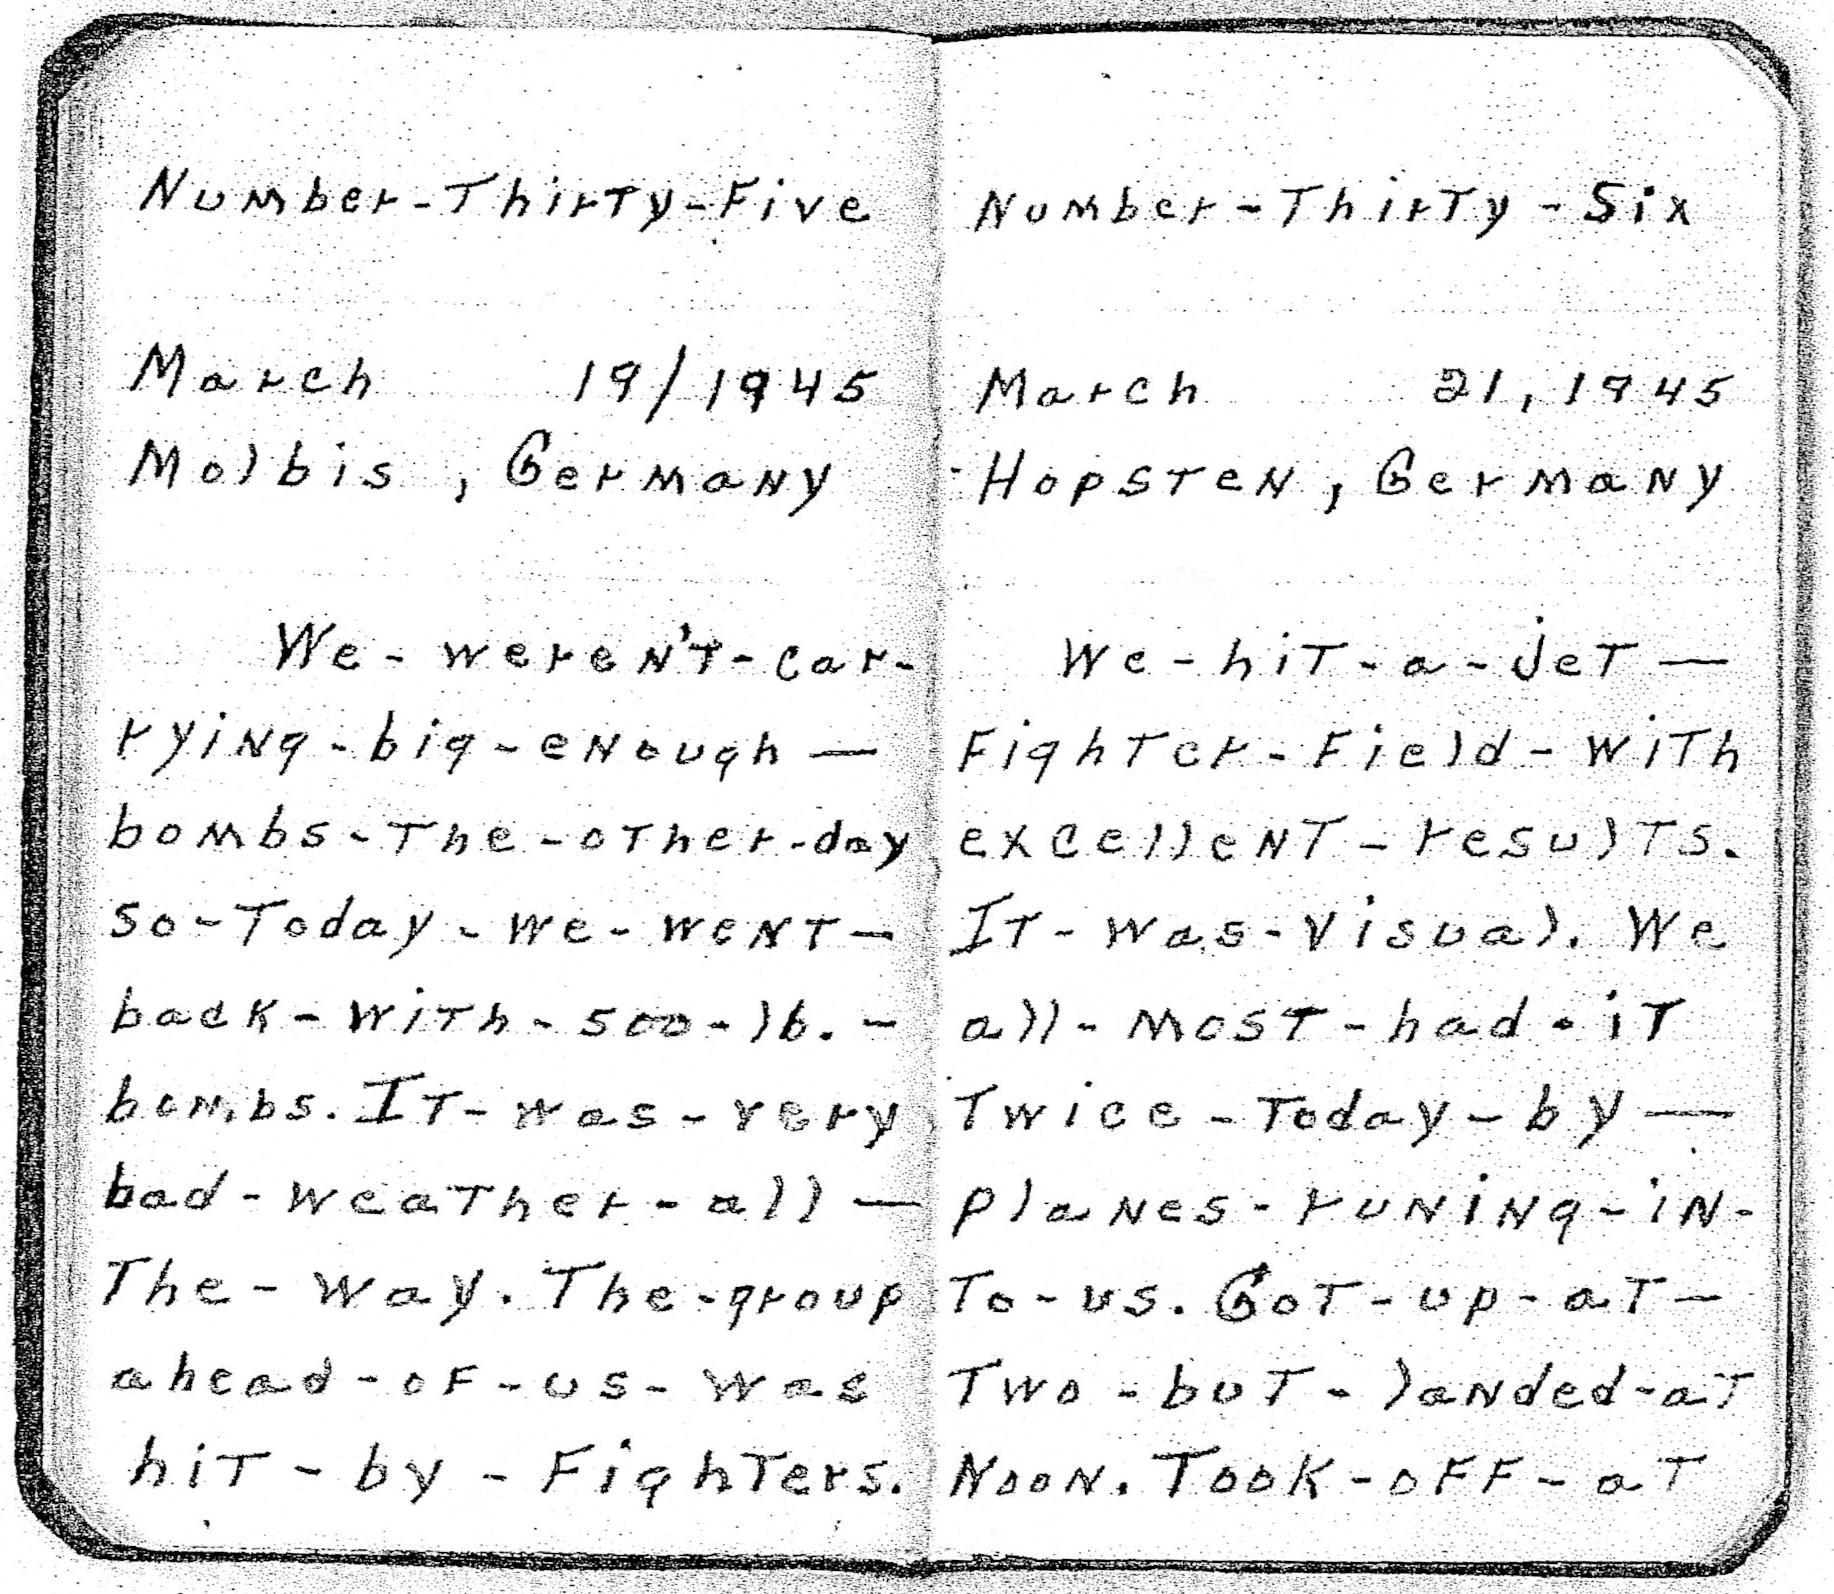 Number-Thirty-Five
March 19/1945
Molbis, Germany
We-weren't-car-
rying-big-enough—
bombs-The-other-day
so-Today-we-went—
back-with-500-lb.-
bombs. It-was-very
bad-weather-all—
The-way. The-group
ahead-of-us-was
hit-by-Fighters.
Number-Thirty-Six
March 21, 1945
Hopsten, Germany
We-hit-a-jet—
Fighter-Field-with
excellent-results.
It-was-visual. We
all-most-had-it
Twice-Today-by—
planes-runing-in-
To-us. Got-up-at—
Two-but-landed-at
Noon. Took-off-at